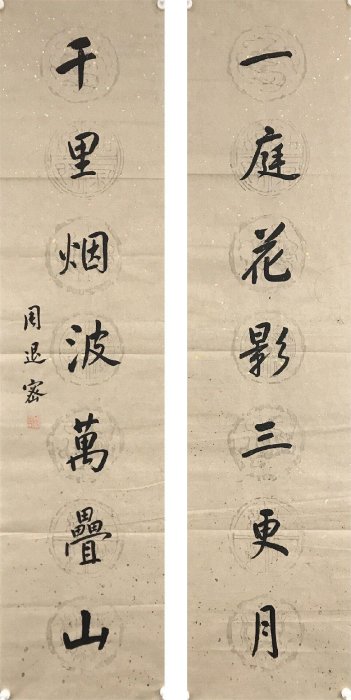 一庭花影三更月
千里烟波萬疊山
周退密